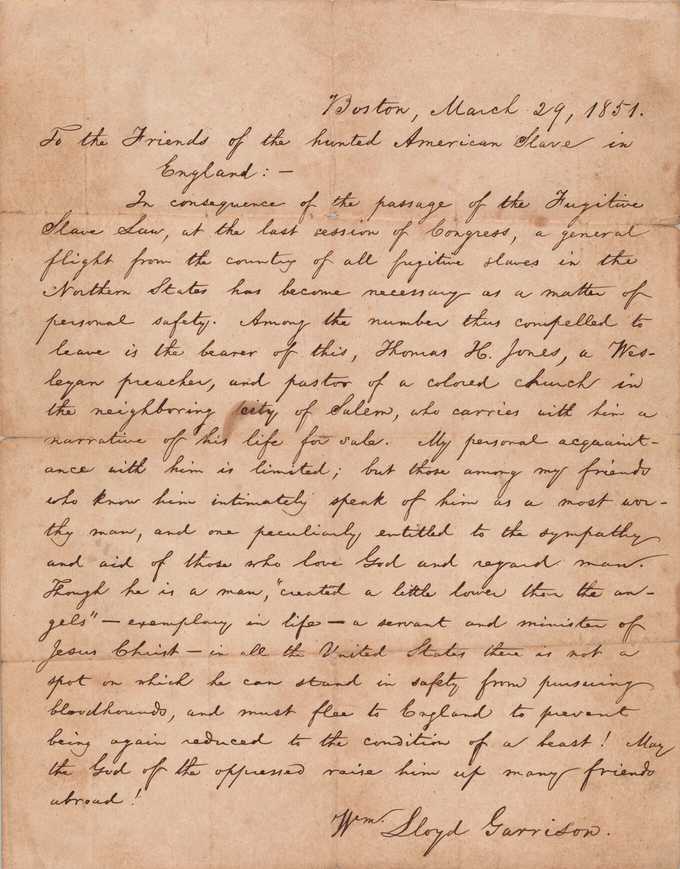 Boston, March 29, 1851.
To the Friends of the hunted American Slave in
England: —
In consequence of the passage of the Fugitive
Slave Law, at the last session of Congress, a general
flight from the country of all fugitive slaves in the
Northern States has become necessary as a matter of
personal safety. Among the number thus compelled to
leave is the bearer of this, Thomas H. Jones, a Wes-
leyan preacher, and pastor of a colored church in
the neighboring city of Salem, who carries with him a
narrative of his life for sale. My personal acquaint-
ance with him is limited; but those among my friends
who know him intimately speak of him as a most wor-
thy man, and one peculiarly entitled to the sympathy
and aid of those who love God and regard man.
Though he is a man, "created a little lower than the an-
gels" — exemplary in life — a servant and minister of
Jesus Christ — in all the United States there is not a
spot on which he can stand in safety from pursuing
bloodhounds, and must flee to England to prevent
being again reduced to the condition of a beast! May
the God of the oppressed raise him up many friends
abroad!
Wm. Lloyd Garrison.